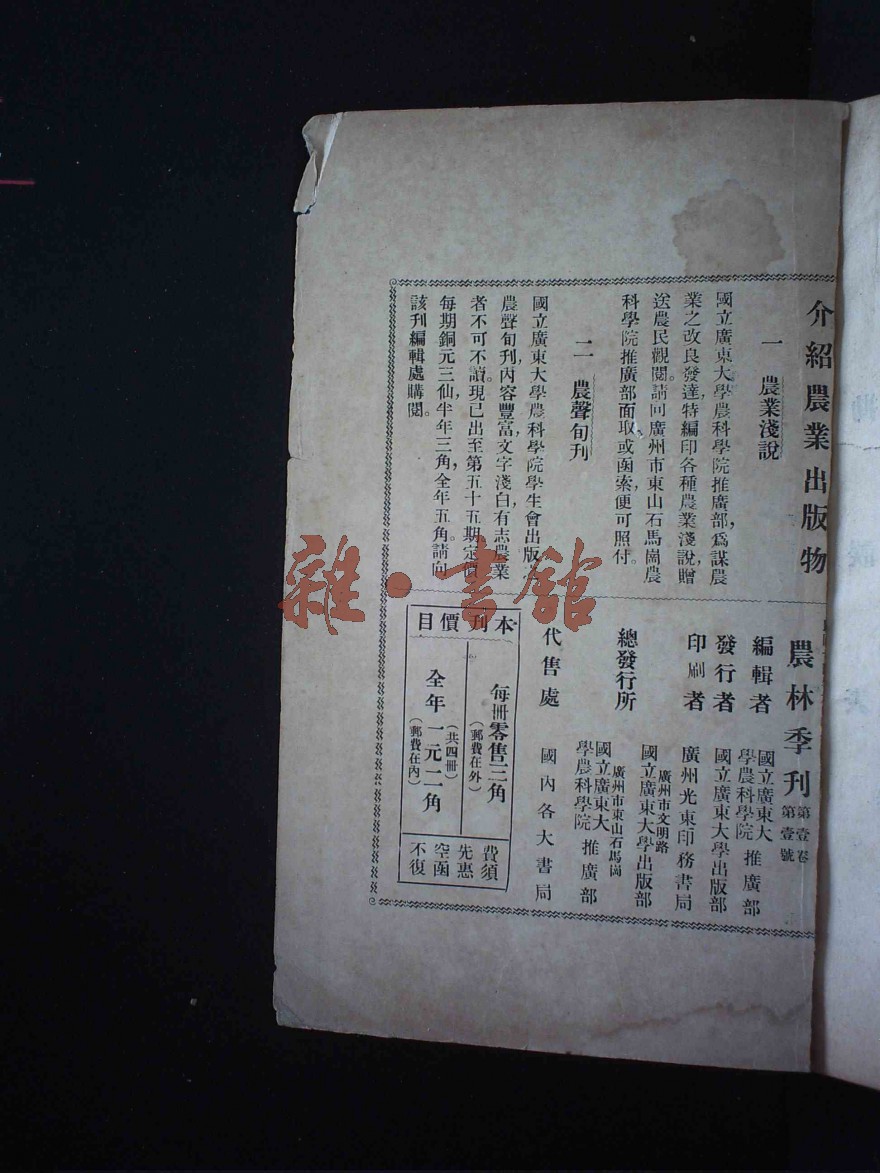 介紹農業出版物
一 農業淺說
國立廣東大學農科學院推廣部,為謀農
業之改良發達,特編印各種農業淺說,贈
送農民觀閱。請回廣州市東山石馬崗農
科學院推廣部面取、或函索、便可照付。
二 農聲旬刊
國立廣東大學農科學院學生會出版
農聲旬刊,內容豐富,文字淺白,有志農業
者不可不讀。現已出至第五十五期定價
每期銅元三仙,半年三角,全年五角。請向
該刊編輯處購閱。
農林季刊 第壹卷 第壹號
編輯者 國立廣東大學農科學院 推廣部
發行者 國立廣東大學出版部
印刷者 廣州光東印務書局
總發行所
廣州市文明路
國立廣東大學出版部
廣州市東山石馬崗
國立廣東大學農科學院 推廣部
代售處 國內各大書局
本刊價目
每冊零售三角
(郵費在外)
(共四冊)
全年一元二角
(郵費在內)
費須
先惠
空函
不復
雜·書館